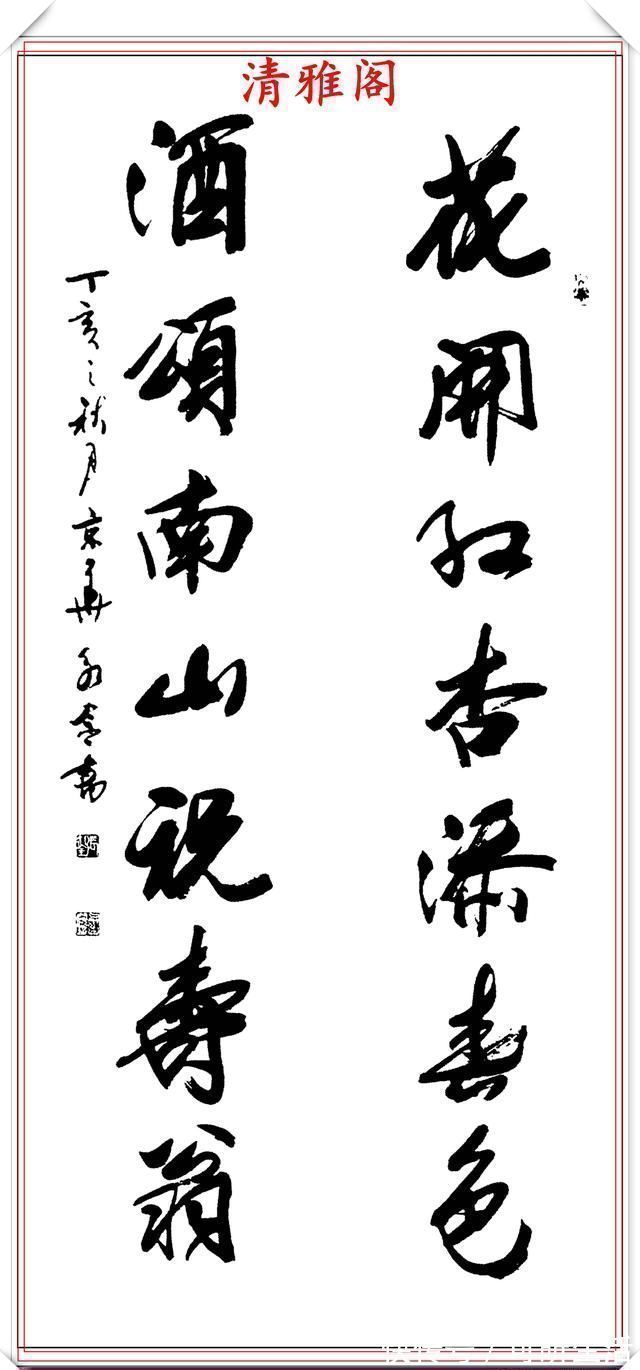 清雅阁
花開红杏添春色
酒頌南山祝壽翁
丁亥之秋月京華